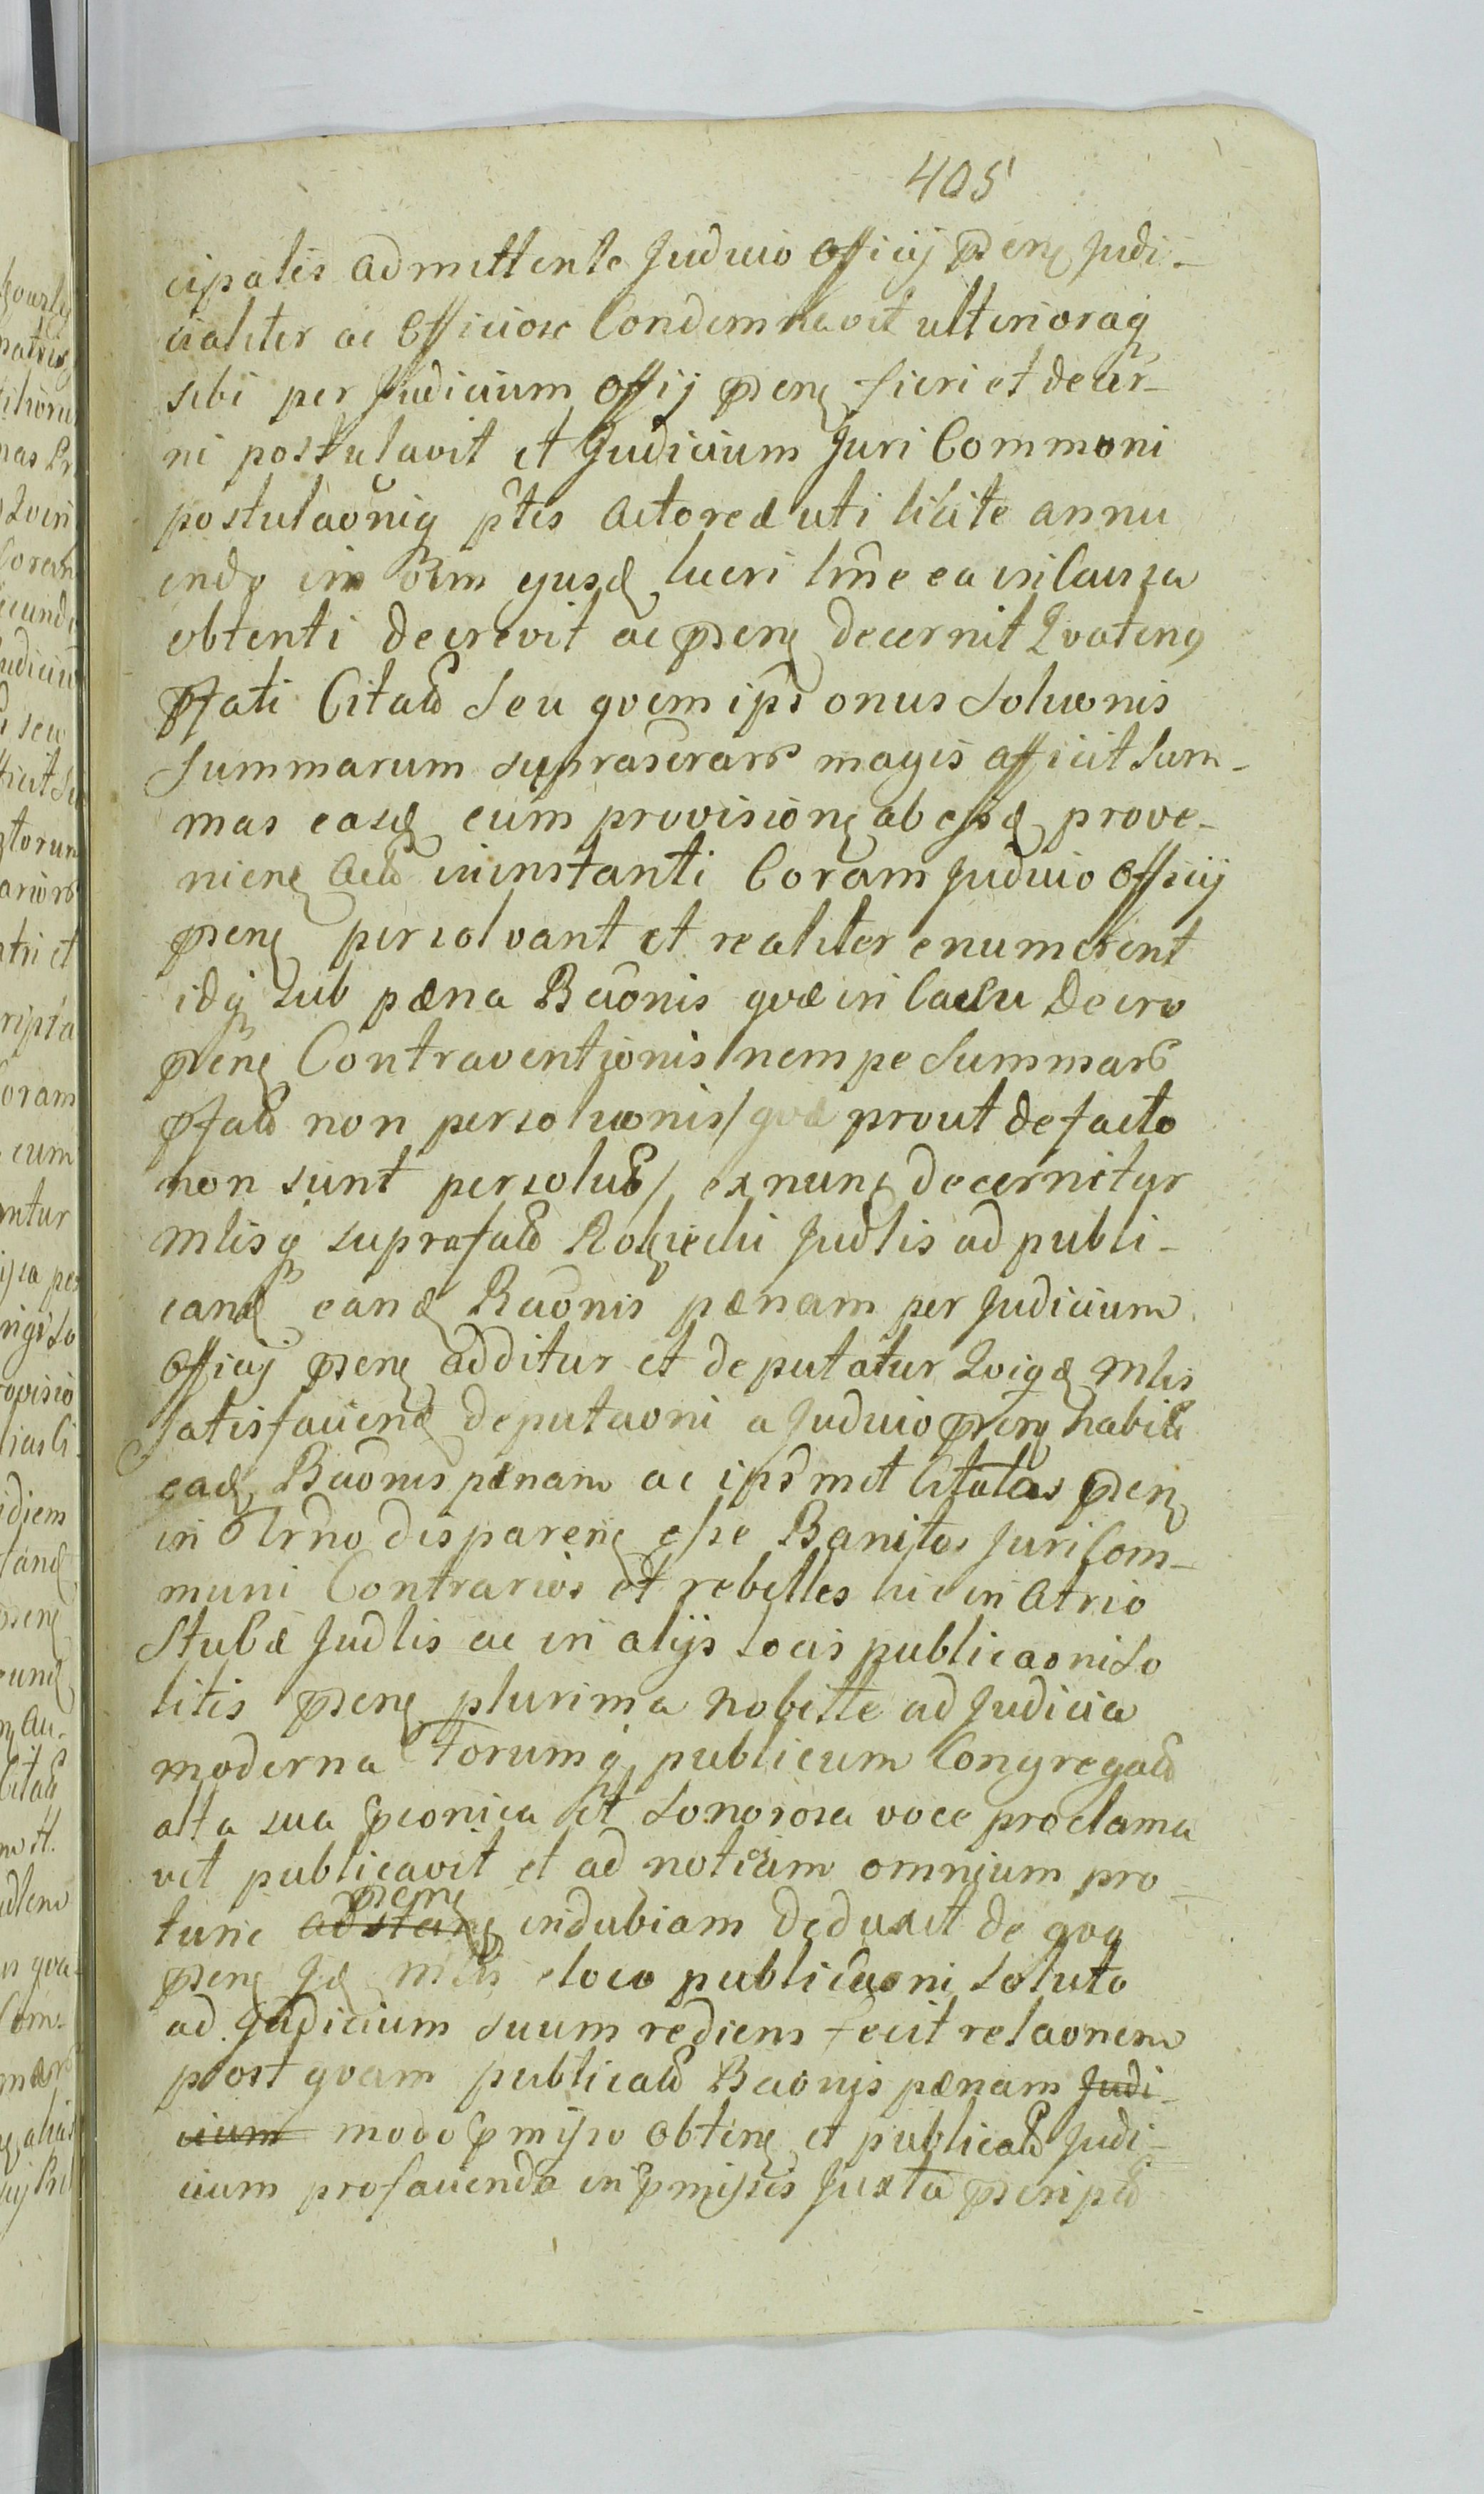 405
cipalis admittente Judicio Officij pseng Judi-
cialiter ac Officiose Condemnavit ulterioraq
sibi per Judicium Offij pseng fieri et decer-
ni postulavit et Judicium Juri Commoni
postulaonig ptis Actoreæ uti licite annu
endo in Rim ejusd lucri lrñe ea in Causa
obtenti decrevit ac pseng decernit Qvateng
pfati Citati seu qvem ipŝ onus Soluonis
Summarum suprascrar magis afficit Sum-
mas easd cum provisiong ab eisd prove-
nieng Acto in instanti Coram Judicio Officij
pseng persolvant et realiter enumerent
idq sub pæna Baonis qvæ in Casu decro
pseng Contraventionis /nempe Summar
pfat non persoluonis/ qvæ prout de facto
non sunt persolut/ ex nunc decernitur
Mlisq suprafat Judlis ad publi-
cand eand Baonis pænam per Judicium
Officij pseng additur et deputatur Qviqd Mlis
Satisfaciend deputaoni a Judicio pseng habita
ead Baonis pænam ac ipŝmet Citatos pseng
in Trno dispareng esse Banitos Juri Com-
muni Contrarios et rebelles hic in Atrio
Stubæ Judlis ac in alijs Locis publicaoni So
litis pseng plurima Nobitte ad Judicia
moderna Forumq publicum Congregat
alta sua pconica et Sonorosa voce proclama
vit publicavit et ad noticiam omnium pro-
tunc adstang pseng indubiam deduxit de qvq
pseng Id Mlis e loco publicaoni Soluto
ad Judicium suum rediens fecit relaonem
post qvam publicat Baonis pænam Judi-
cium modo pmisso Obteng et publicat Judi-
cium profaciendo in pmissis Juxta pscript